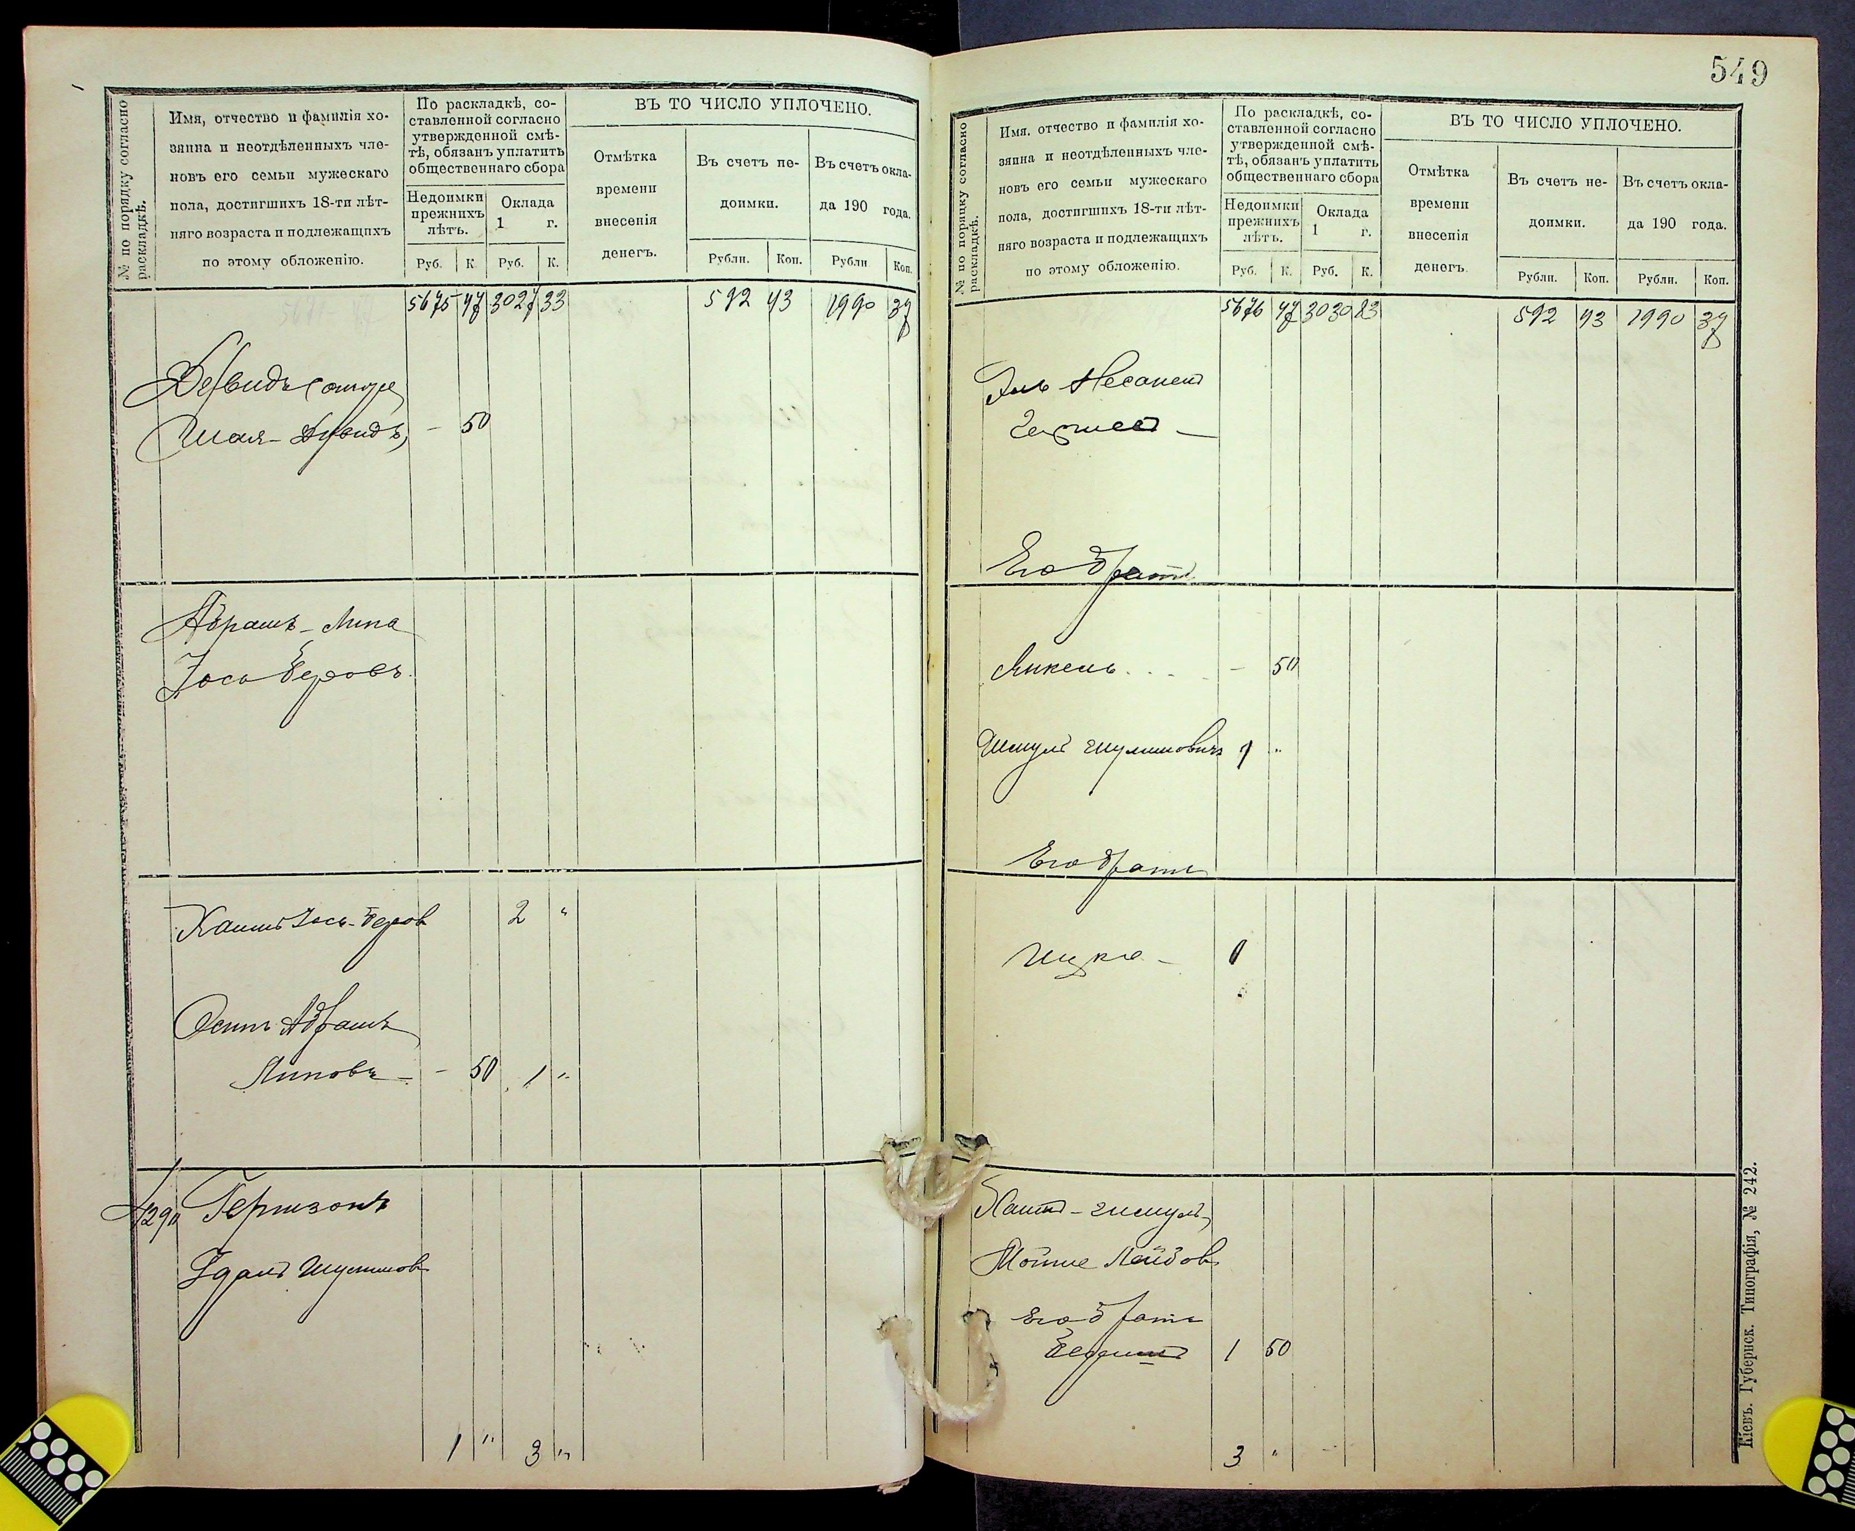 549
№ по порядку согласно раскладкѣ.
Имя, отчество и фамилія хо-
зяина и неотдѣленныхъ чле-
новъ его семьи мужескаго
пола, достигшихъ 18-ти лѣт-
няго возраста и подлежащихъ
по этому обложенію.
По раскладкѣ, со-
ставленной согласно
утвержденной смѣ-
тѣ, обязанъ уплатить
общественнаго сбора
Недоимки
прежнихъ
лѣтъ.
Оклада
1 г.
Руб. К. Руб. К.
ВЪ ТО ЧИСЛО УПЛОЧЕНО.
Отмѣтка
времени
внесенія
денегъ.
Въ счетъ не-
доимки.
Въ счетъ окла-
да 190 года.
Рубли. Коп. Рубли Коп.
5675 47 3027 33 592 43 1990 37
Шая-Дувидъ, - 50
Абрамъ-Липа
Іось Беровъ.
Хаимъ Іось-Беров 2 "
Осипъ Абрамъ
Липовъ - 50 1 "
1290 Гершзонъ
Іданъ Шулимов
1 " 3 "
№ по порядку согласно раскладкѣ.
Имя, отчество и фамилія хо-
зяина и неотдѣленныхъ чле-
новъ его семьи мужескаго
пола, достигшихъ 18-ти лѣт-
няго возраста и подлежащихъ
по этому обложенію.
По раскладкѣ, со-
ставленной согласно
утвержденной смѣ-
тѣ, обязанъ уплатить
общественнаго сбора
Недоимки
прежнихъ
лѣтъ.
Оклада
1 г.
Руб. К. Руб. К.
ВЪ ТО ЧИСЛО УПЛОЧЕНО.
Отмѣтка
времени
внесенія
денегъ.
Въ счетъ не-
доимки.
Въ счетъ окла-
да 190 года.
Рубли. Коп. Рубли. Коп.
5676 47 3030 83 592 43 1990 37
Его братъ
Янкель . . . - 50
Шмулъ Шулимовичъ 1 "
Его братъ
Ицко - 1
Хаимъ-Шмуль
Мойше Лейбов
его братъ
1 50
3 "
Кіевъ. Губернск. Типографія, № 242.